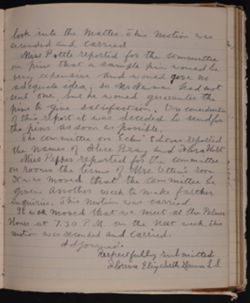 look into the matter. This motion was
seconded and carried.
Miss Pottle reported for the committee
on pins that a sample pin would be
very expensive and would give no
adequate idea, so Mr had not
sent one, but he would guarantee the
pins to give satisfaction. On
of this report it was decided to send for
the pins as soon as possible.
The committee on "Echo" Editors reported
the names of Alice Bray and Flora Holt
Miss Pepper reported for the committee
on rooms the terms of Mrs.
It was moved that the committee be
given another week to make further
inquiries. This motion was carried.
It was moved that we meet at the Palmer
House at 7.30 P.M. on the next week this
motion was seconded and carried.
Adjourned.
Respectfully submitted
Elizabeth